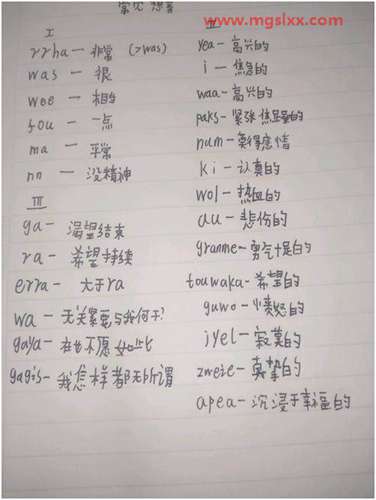 常见 想音
www.mgslxx.com
I
rrha — 非常 (>was)
was — 很
wee — 相当
fou — 一点
ma — 平常
nn — 没精神
III
ga — 渴望结束
ra — 希望持续
erra — 大于ra
wa — 无关紧要与我何干?
gaya — 再也不愿如此
gagis — 我怎样都无所谓
II
yea — 高兴的
i — 焦急的
waa — 高兴的
paks — 紧张焦虑的
num — 莫得感情
ki — 认真的
wol — 热血的
au — 悲伤的
granme — 勇气十足的
touwaka — 希望的
guwo — 愤怒的
jyel — 寂寞的
zweie — 真挚的
apea — 沉浸于幸福的